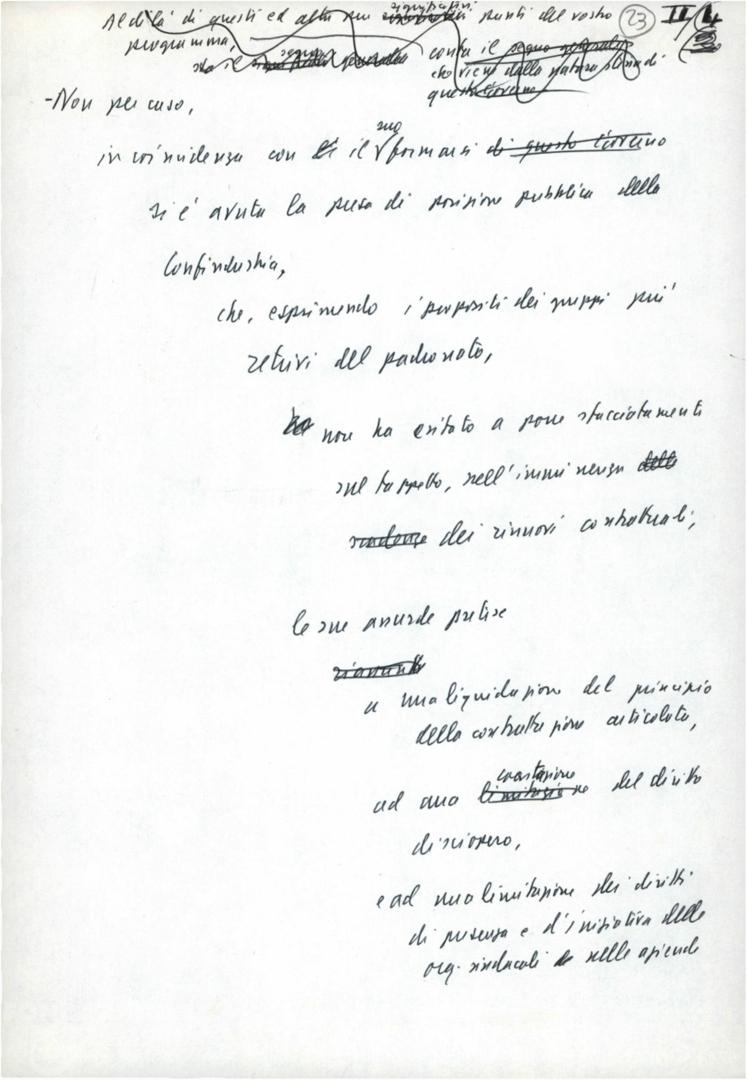 Al di là di questi ed altri pur significativi punti del vostro
programma,
ma il segno
conta il segno generale
che viene dalla natura stessa di
questo Governo
23 II/4
- Non per caso,
in coincidenza con il suo formarsi di questo Governo
si è avuta la presa di posizione pubblica della
Confindustria,
che, esprimendo i propositi dei gruppi più
retrivi del padronato,
non ha esitato a porre sfacciatamente
sul tappeto, nell'imminenza delle
scadenze dei rinnovi contrattuali,
le sue assurde pretese
a una liquidazione del principio
della contrattazione articolata,
ad una coartazione limitazione del diritto
di sciopero,
e ad una limitazione dei diritti
di presenza e d'iniziativa delle
org. sindacali nelle aziende